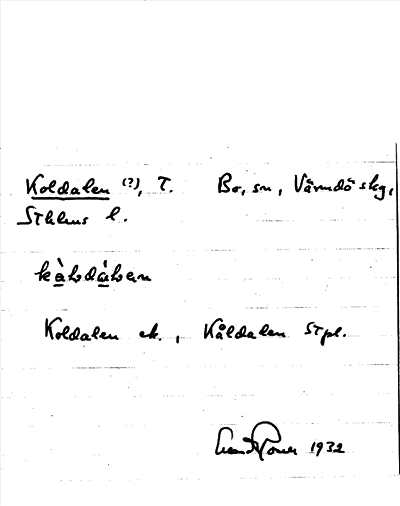 Koldalen (?), T. Bo, sn, Värmdö skg,
Sthlms l.
Koldalen ek., Kåldalen Stpl.
1932